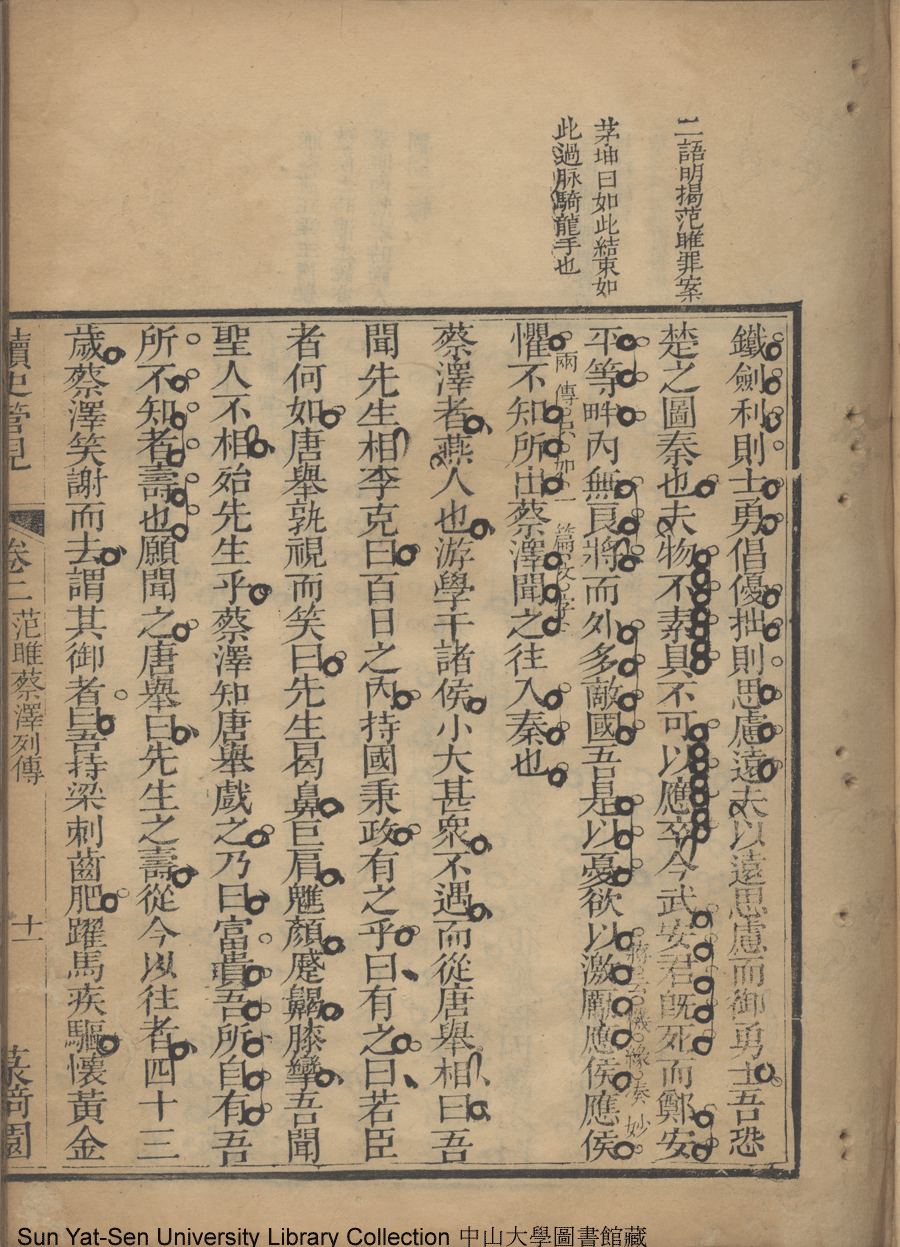 二語明揭范雎罪案
茅坤曰如此結束如
此過脉騎龍手也
鐵劍利則士勇倡優拙則思慮遠夫以遠思慮而御勇士吾恐
楚之圖秦也夫物不素具不可以應卒今武安君旣死而鄭安
平等畔內無良將而外多敵國吾是以憂欲以激勵應侯應侯
機緣湊妙
兩傳只如一篇文字
懼不知所出蔡澤聞之往入秦也
蔡澤者燕人也游學干諸侯小大甚衆不遇而從唐舉相曰吾
聞先生相李克曰百日之內持國秉政有之乎曰有之曰若臣
者何如唐舉孰視而笑曰先生曷鼻巨肩魋顏蹙齃膝攣吾聞
聖人不相殆先生乎蔡澤知唐舉戲之乃曰富貴吾所自有吾
所不知者壽也願聞之唐舉曰先生之壽從今以往者四十三
歲蔡澤笑謝而去謂其御者曰吾持梁刺齒肥躍馬疾驅懷黃金
讀史管見 卷二 范雎蔡澤列傳 十一 菉猗園
Sun Yat-Sen University Library Collection 中山大學圖書館藏